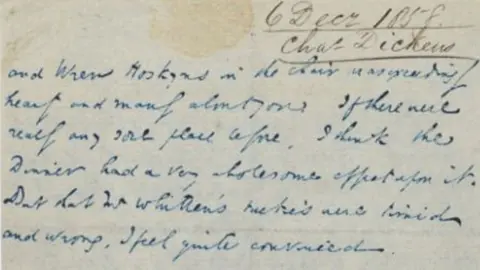 6 Decr 1858.
Chas Dickens
and Wren Hoskyns in the chair was
heart and about you. If there were
really any sore place before, I think the
Dinner had a very wholesome effect upon it.
But that Mr Whitten's were timid
and wrong, I feel quite convinced.